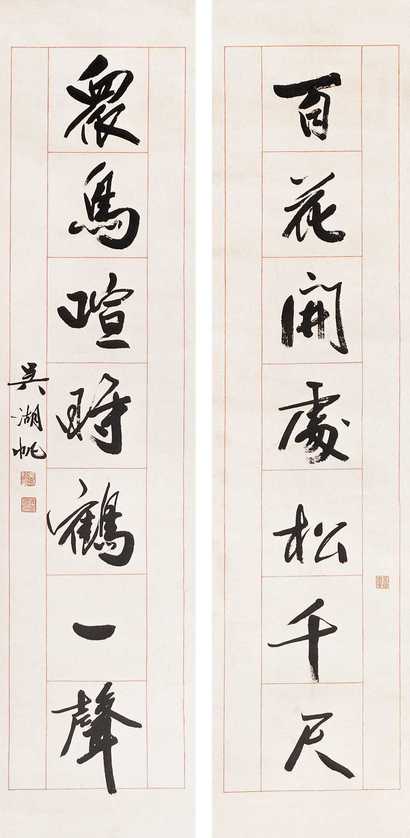 百花開處松千尺
衆鳥喧時鶴一聲
吳湖帆